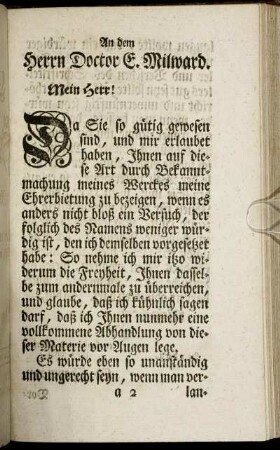 An dem
Herrn Doctor E. Milward.
Mein Herr!
Da Sie so gütig gewesen
sind, und mir erlaubet
haben, Ihnen auf die-
se Art durch Bekannt-
machung meines Werckes meine
Ehrerbietung zu bezeigen, wenn es
anders nicht bloß ein Versuch, der
folglich des Namens weniger wür-
dig ist, den ich demselben vorgesetzet
habe: So nehme ich mir itzo wi-
derum die Freyheit, Ihnen dassel-
be zum andernmale zu überreichen,
und glaube, daß ich kühnlich sagen
darf, daß ich Ihnen nunmehr eine
vollkommene Abhandlung von die-
ser Materie vor Augen lege.
Es würde eben so unanständig
und ungerecht seyn, wenn man ver-
a 2 lan-